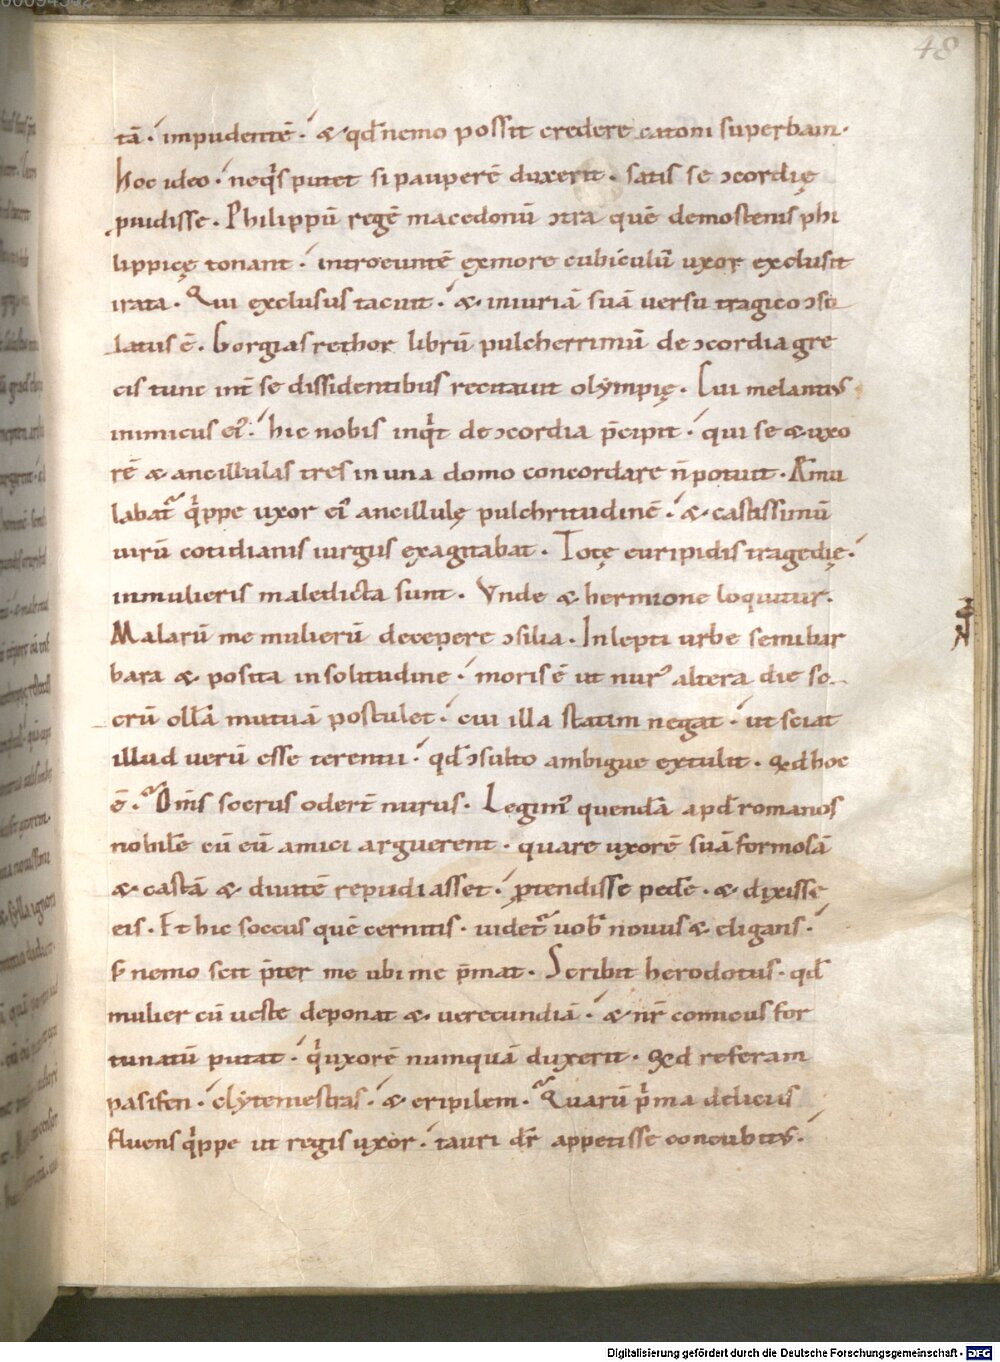 48
tā· impudentē· & qđ nemo possit credere catoni superbam·
hoc ideo· neq̇s putet si pauperē duxerit· satis se ɔcordię
ꝓuidisse· Philippū regē macedonū ɔtra quē demostenis phi
lippicę tonant· introeuntē exmore cubiculū uxor exclusit
irata· Qui exclusus tacuit· & iniuriā suā uersu tragico ɔso
latus ē· Gorgias rethor librū pulcherrimū de ɔcordia gre
cis tunc int̄ se dissidentibus recitauit olympię· Cui melantius
inimicus ei᷒· hic nobis inq̇t de ɔcordia p̄cipit· qui se & uxo
rē & ancillulas tres in una domo concordare n̄ potuit· Aemu
labat᷑ q̇ppe uxor ei᷒ ancillulę pulchritudinē· & castissimū
uirū cotidianis iurgiis exagitabat· Totę euripidis tragedię·
inmulieris maledicta sunt· Vnde & hermione loquitur·
Malarū me mulierū decepere ɔsilia· In lepti urbe semibar
bara & posita insolitudine· moris ē ut nur᷒ altera die so
crū ollā mutuā postulet· cui illa statim negat· ut sciat
illud uerū esse terentii· qđ ɔsulto ambigue extulit· Quid hoc
ē· Om̄s socrus odert̄ nurus· Legim᷒ quendā apđ romanos
nobilē cū eū amici arguerent· quare uxorē suā formosā
& castā & diuitē repudiasset· ꝓtendisse pedē· & dixisse
eis· Et hic soccus quē cernitis· uidet᷑ uob̄ nouus & eligans·
s; nemo scit p̄ter me ubi me p̄mat· Scribit herodotus· qđ
mulier cū ueste deponat & uerecundiā· & nr̄ comicus for
tunatū putat· q̇ uxorē numquā duxerit· Quid referam
pasifen· clytemestras· & eripilem· Quarū ṗma deliciis
fluens q̇ppe ut regis uxor· tauri dr̄ appetisse concubitus·
Digitalisierung gefördert durch die Deutsche Forschungsgemeinschaft - DFG